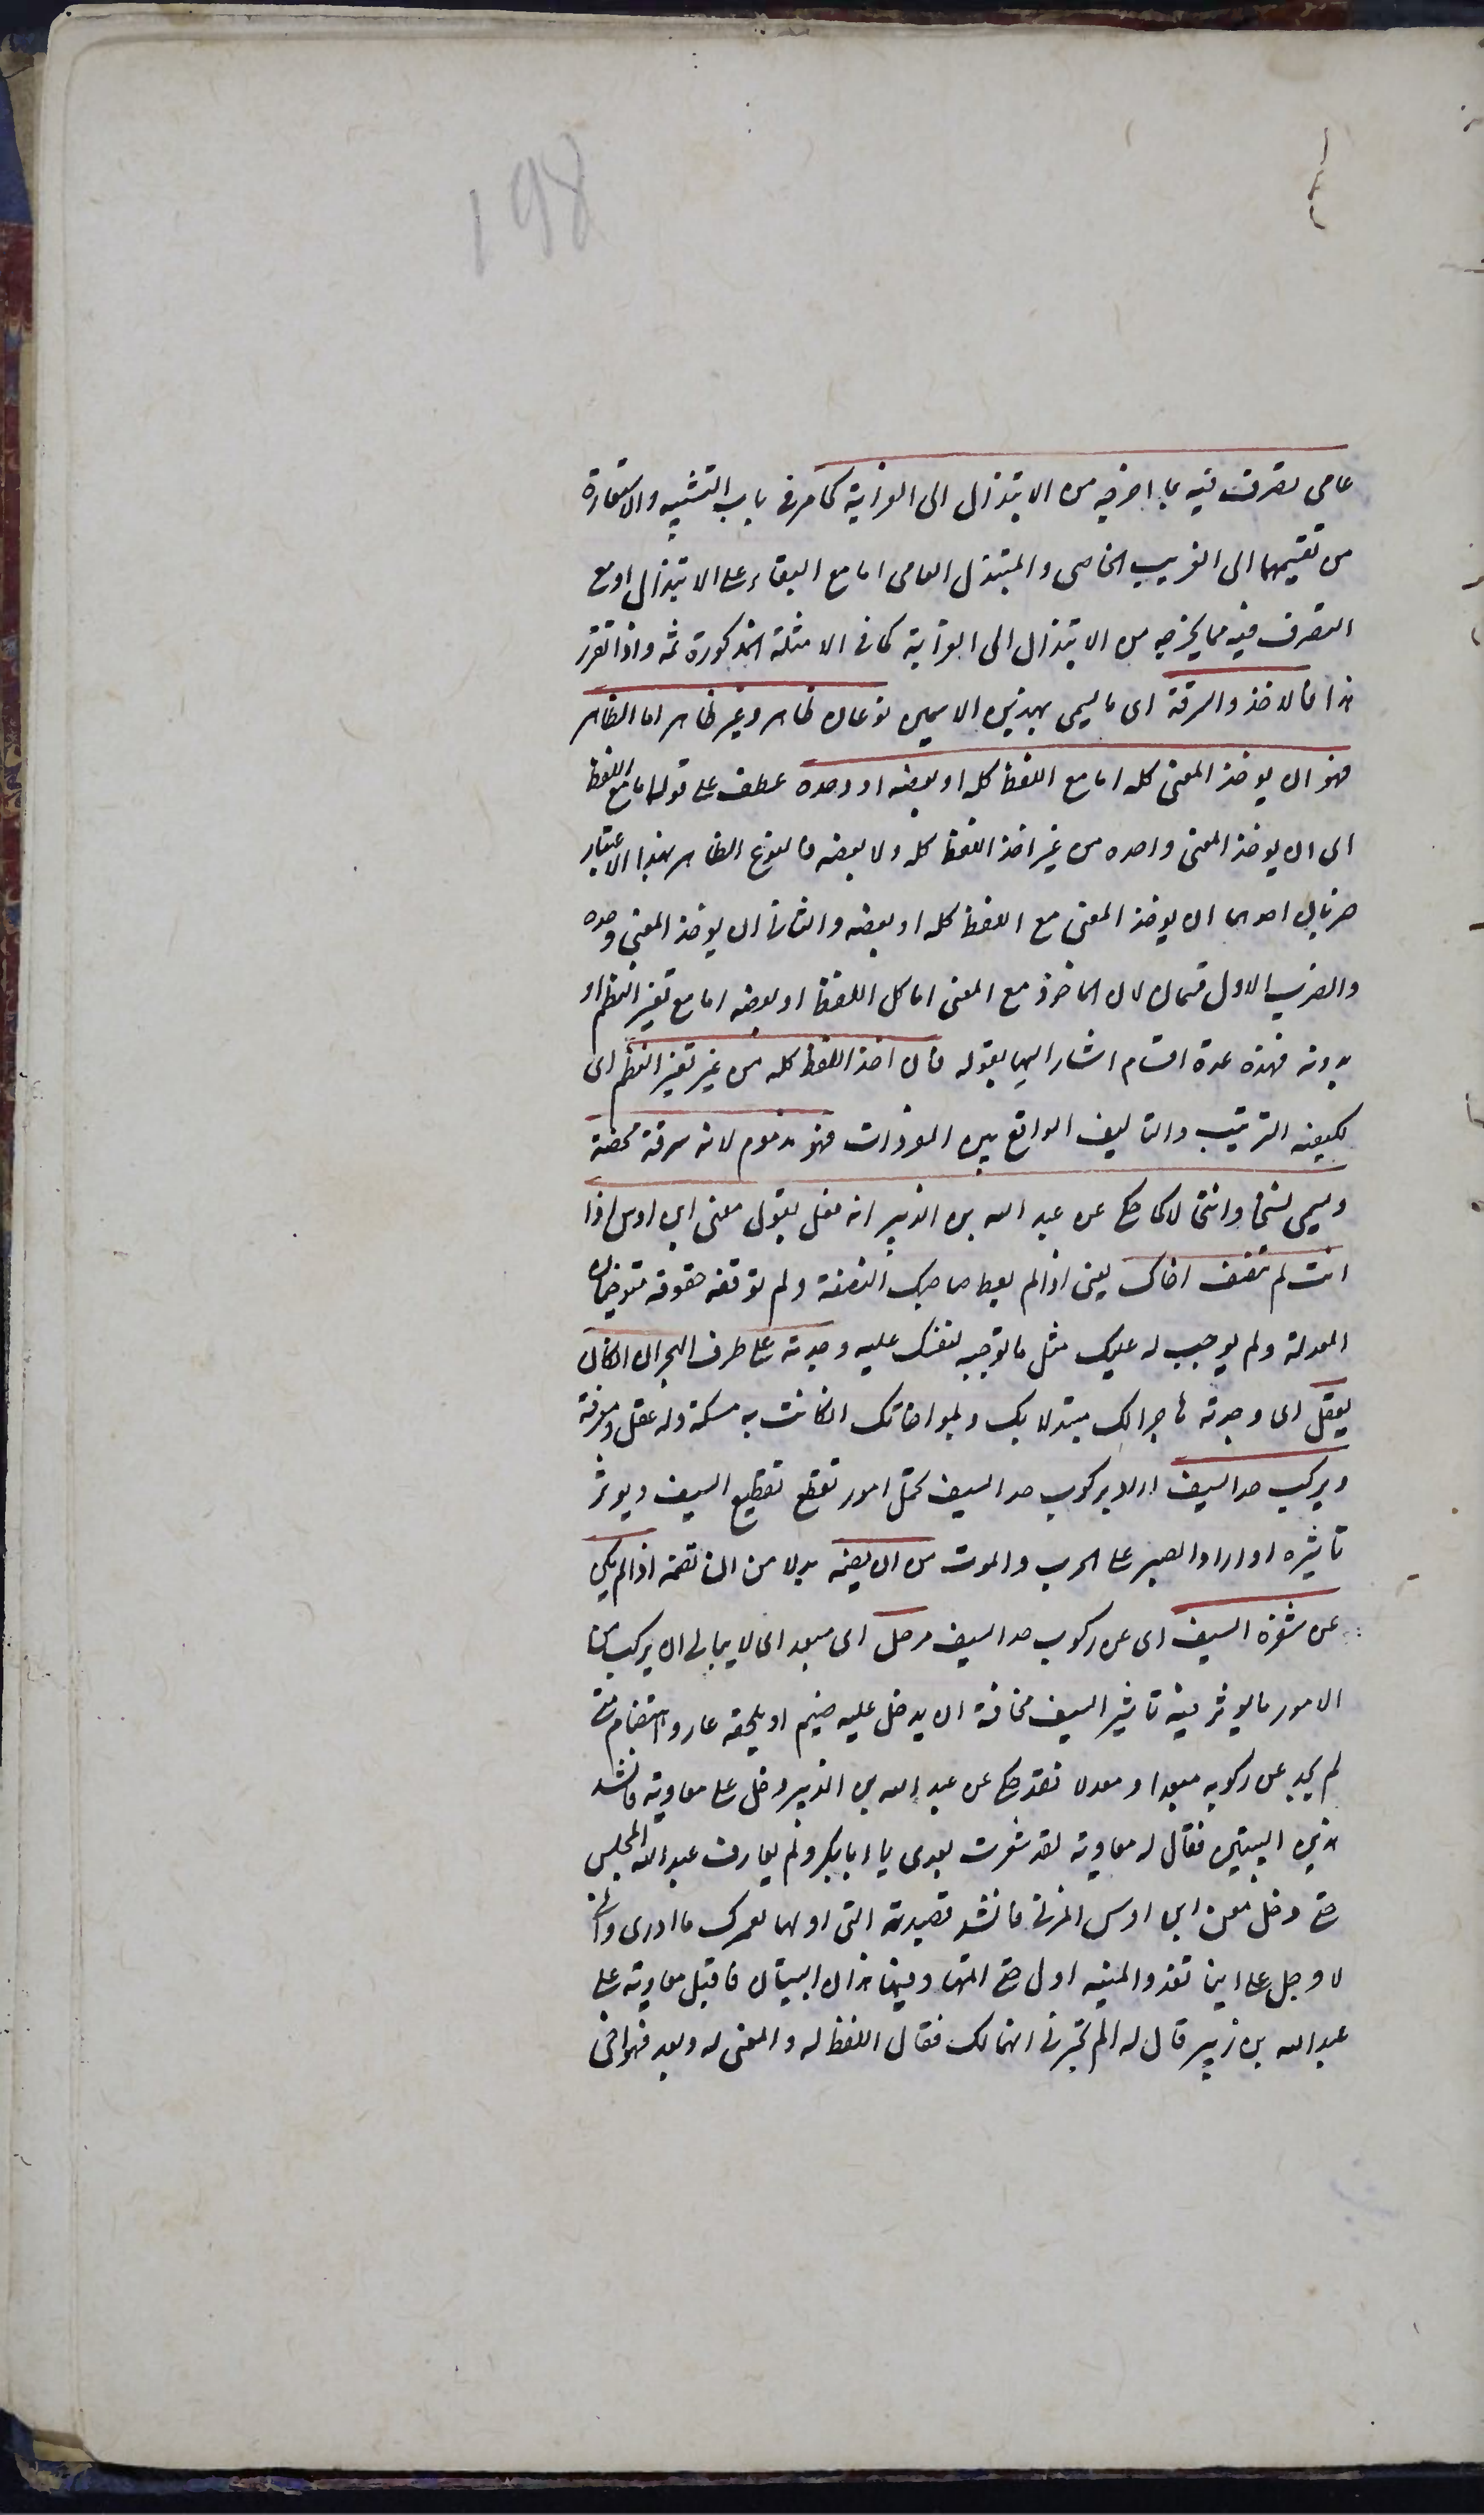 198
عامى تصرف فيه بما اخرجه من الابتذال الى الغرابة كما مر فى باب التشبيه والاستعارة
من تقسيمهما الى الغريب الخاصى والمبتذل العامى اما مع البقاء على الابتذال او مع
التصرف فيه مما يخرجه من الابتذال الى الغرابة كما فى الامثلة المذكورة ثمه واذا تقرر
هذا فالاخذ والسرقة اى ما يسمى بهذين الاسمين نوعان ظاهر وغير ظاهر اما الظاهر
فهو ان يوخذ المعنى كله اما مع اللفظ كله او بعضه او وحده عطف على قوله اما مع اللفظ
اى ان يوخذ المعنى وحده من غير اخذ اللفظ كله ولا بعضه فالنوع الظاهر بهذا الاعتبار
ضربان احدهما ان يوخذ المعنى مع اللفظ كله او بعضه والثانى ان يوخذ المعنى وحده
والضرب الاول قسمان لان الماخوذ مع المعنى اما كل اللفظ او بعضه اما مع تغير النظم او
بدونه فهذه عدة اقسام اشار اليها بقوله فان اخذ اللفظ كله من غير تغير النظم اى
لكيفية الترتيب والتاليف الواقع بين المفردات فهو مذموم لانه سرقة محضة
ويسمى نسخا وانتحالا كما حكى عن عبد الله بن الزبير انه فعل بقول معن ابن اوس اذا
انت لم تنصف اخاك يعنى اذا لم يعط صاحبك النصفة ولم توقفه حقوقه متوخيا
المعدلة ولم يوجب له عليك مثل ما توجبه لنفسك عليه وجدته على طرف الهجران ان كان
يعقل اى وجدته هاجرا لك مبتدلا بك وبمواخاتك ان كانت به مسكة وله عقل ومعرفة
ويركب حد السيف اراد بركوب حد السيف تحمل امور تقطع تقطيع السيف ويوثر
تاثيره او اراد الصبر على الحرب والموت من ان يضيمه بدلا من ان تضيمه اذا لم يكن
عن شفرة السيف اى عن ركوب حد السيف مزحل اى مبعد اى لا يبالى ان يركب من
الامور ما يوثر فيه تاثير السيف مخافة ان يدخل عليه ضيم او يلحقه عار واهتضام متى
لم يجد عن ركوبه مبعدا ومعدلا فقد حكى عن عبد الله بن الزبير دخل على معاوية فانشد
هذين البيتين فقال له معاوية لقد شعرت بعدى يا ابا بكر ولم يفارق عبد الله المجلس
حتى دخل معن ابن اوس المزنى فانشد قصيدته التى اولها لعمرك ما ادرى وانى
لاوجل على اينا تغدو المنيه اول حتى اتمها وفيها هذان البيتان فاقبل معاوية على
عبد الله بن زبير قال له الم تخبرنى انهما لك فقال اللفظ له والمعنى له وبعد فهو اخى